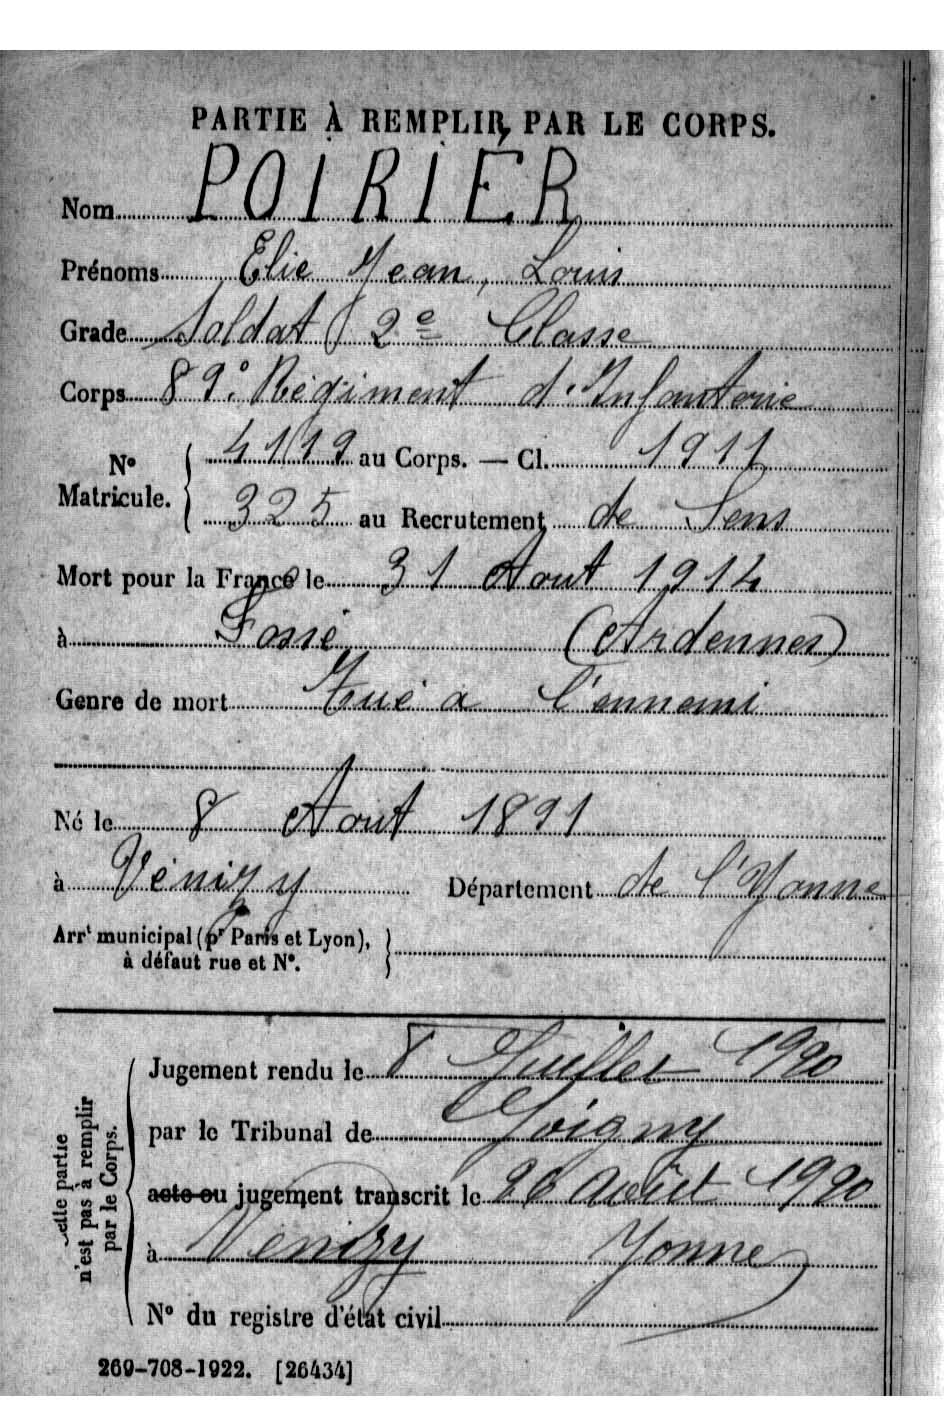 PARTIE À REMPLIR PAR LE CORPS.
Nom POIRIER
Prénoms Elie Jean, Louis
Grade Soldat 2e Classe
Corps 89e Régiment d'Infanterie
No Matricule. 4119 au Corps. — Cl. 1911
325 au Recrutement de Sens
Mort pour la France le 31 Aout 1914
à Fossé (Ardennes)
Genre de mort Tué à l'ennemi
Né le 8 Aout 1891
à Vénizy Département de l'Yonne
Arrt municipal (pr Paris et Lyon),
à défaut rue et No.
Cette partie
n'est pas à remplir
par le Corps.
Jugement rendu le 8 Juillet 1920
par le Tribunal de Joigny
acte ou jugement transcrit le 26 août 1920
à Venizy Yonne
No du registre d'état civil
269-708-1922. [26434]